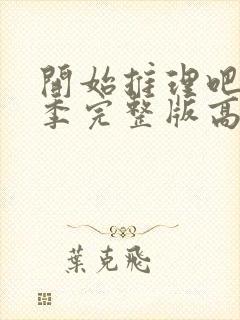 開始推理吧
季完整版高
葉克飛